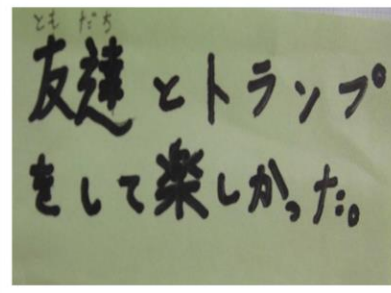 ともだち
友達とトランプ
をして楽しかった。